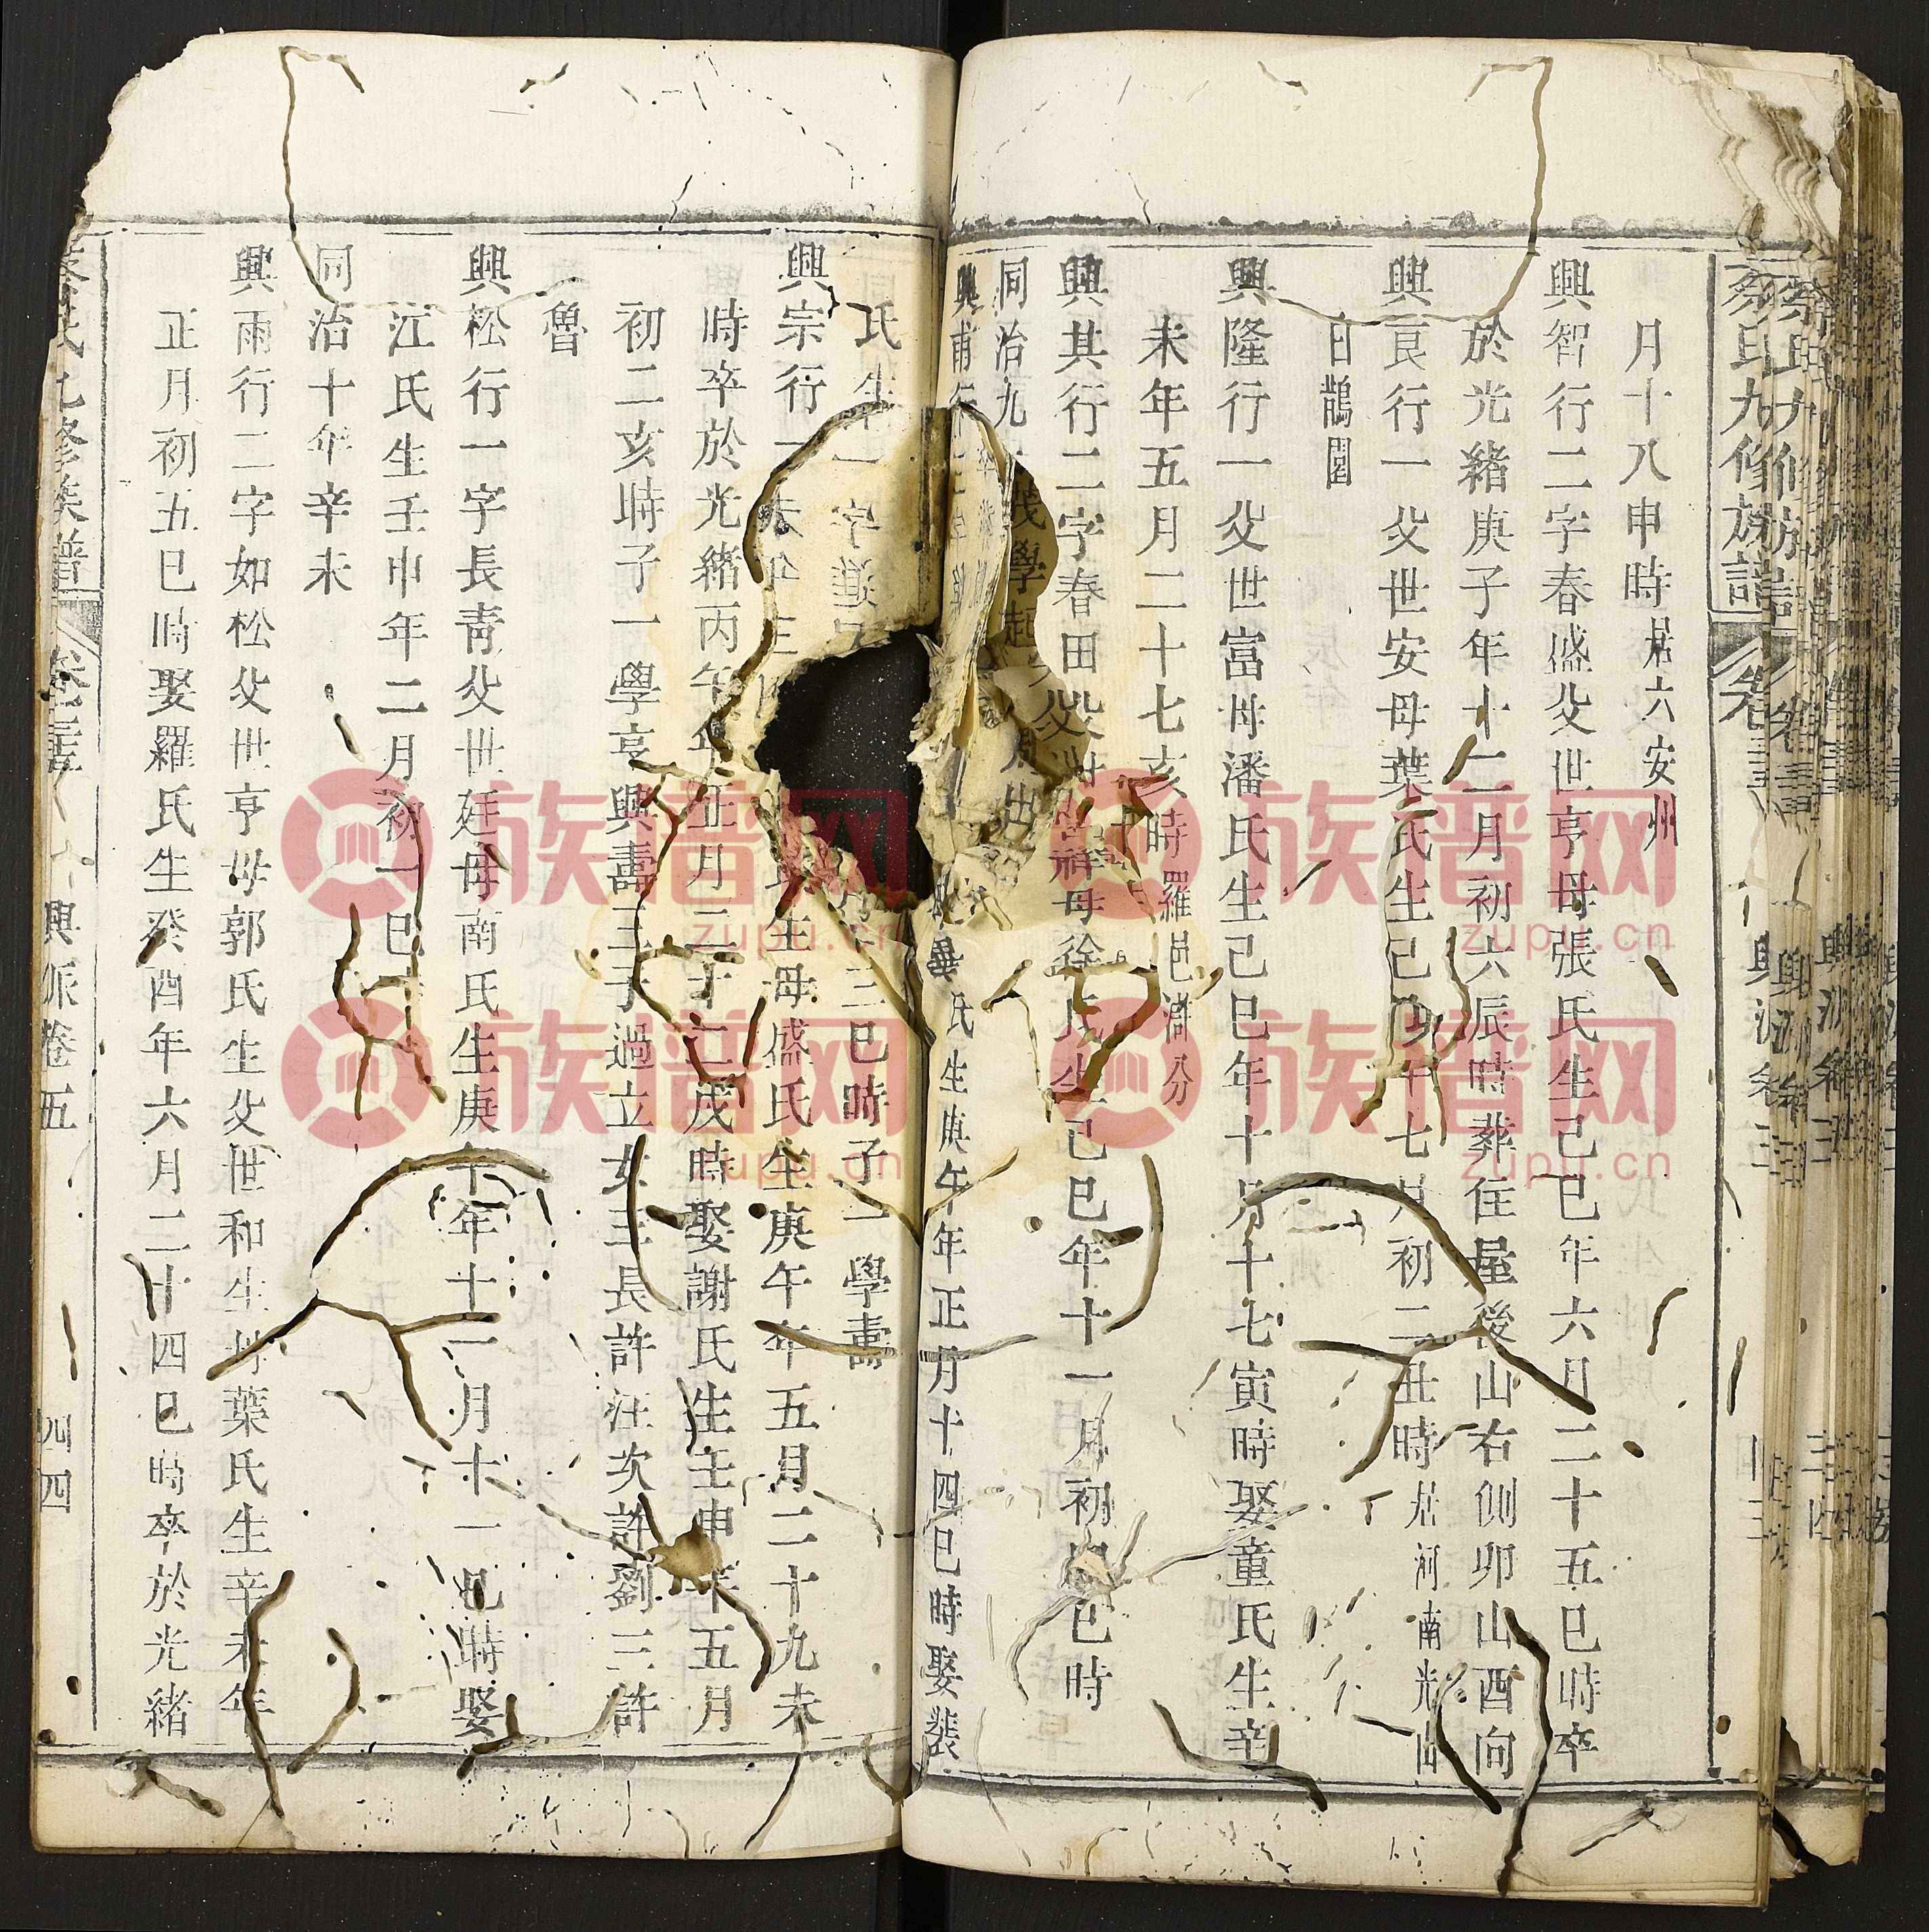 蔡氏九修族譜
月十八申時居六安州
興智行二字春盛父世亨母張氏生己巳年六月二十五巳時卒
於光緒庚子年十二月初六辰時葬住屋後山右側卯山酉向
興良行一父世安母葉氏生己巳 七月初二丑時居河南光山
白鵲園
興隆行一父世富母潘氏生己巳年十月十七寅時娶童氏生辛
未年五月二十七亥時羅邑滸分
興其行二字春田父世祥母徐氏生己巳年十一月初 巳時
同治九
興甫行 氏生庚午年正月十四巳時娶裴
氏生 三巳時子一學壽
興宗行一 母盛氏生庚午年五月二十九未
時卒於光緒丙午年正月二十二戌時娶謝氏生壬申年五月
初二亥時子一學亮興壽三子過立女三長許汪次許劉三許
魯
興松行一字長青父世廷母南氏生庚午年十一月十一巳時娶
江氏生壬申年二月初一巳
同治十年辛未
興雨行二字如松父世亨母郭氏生父世和生母葉氏生辛未年
正月初五巳時娶羅氏生癸酉年六月二十四巳時卒於光緒
蔡氏九修族譜 興派卷五 四四
族谱网
zupu.cn
族谱网
zupu.cn
族谱网
zupu.cn
族谱网
zupu.cn